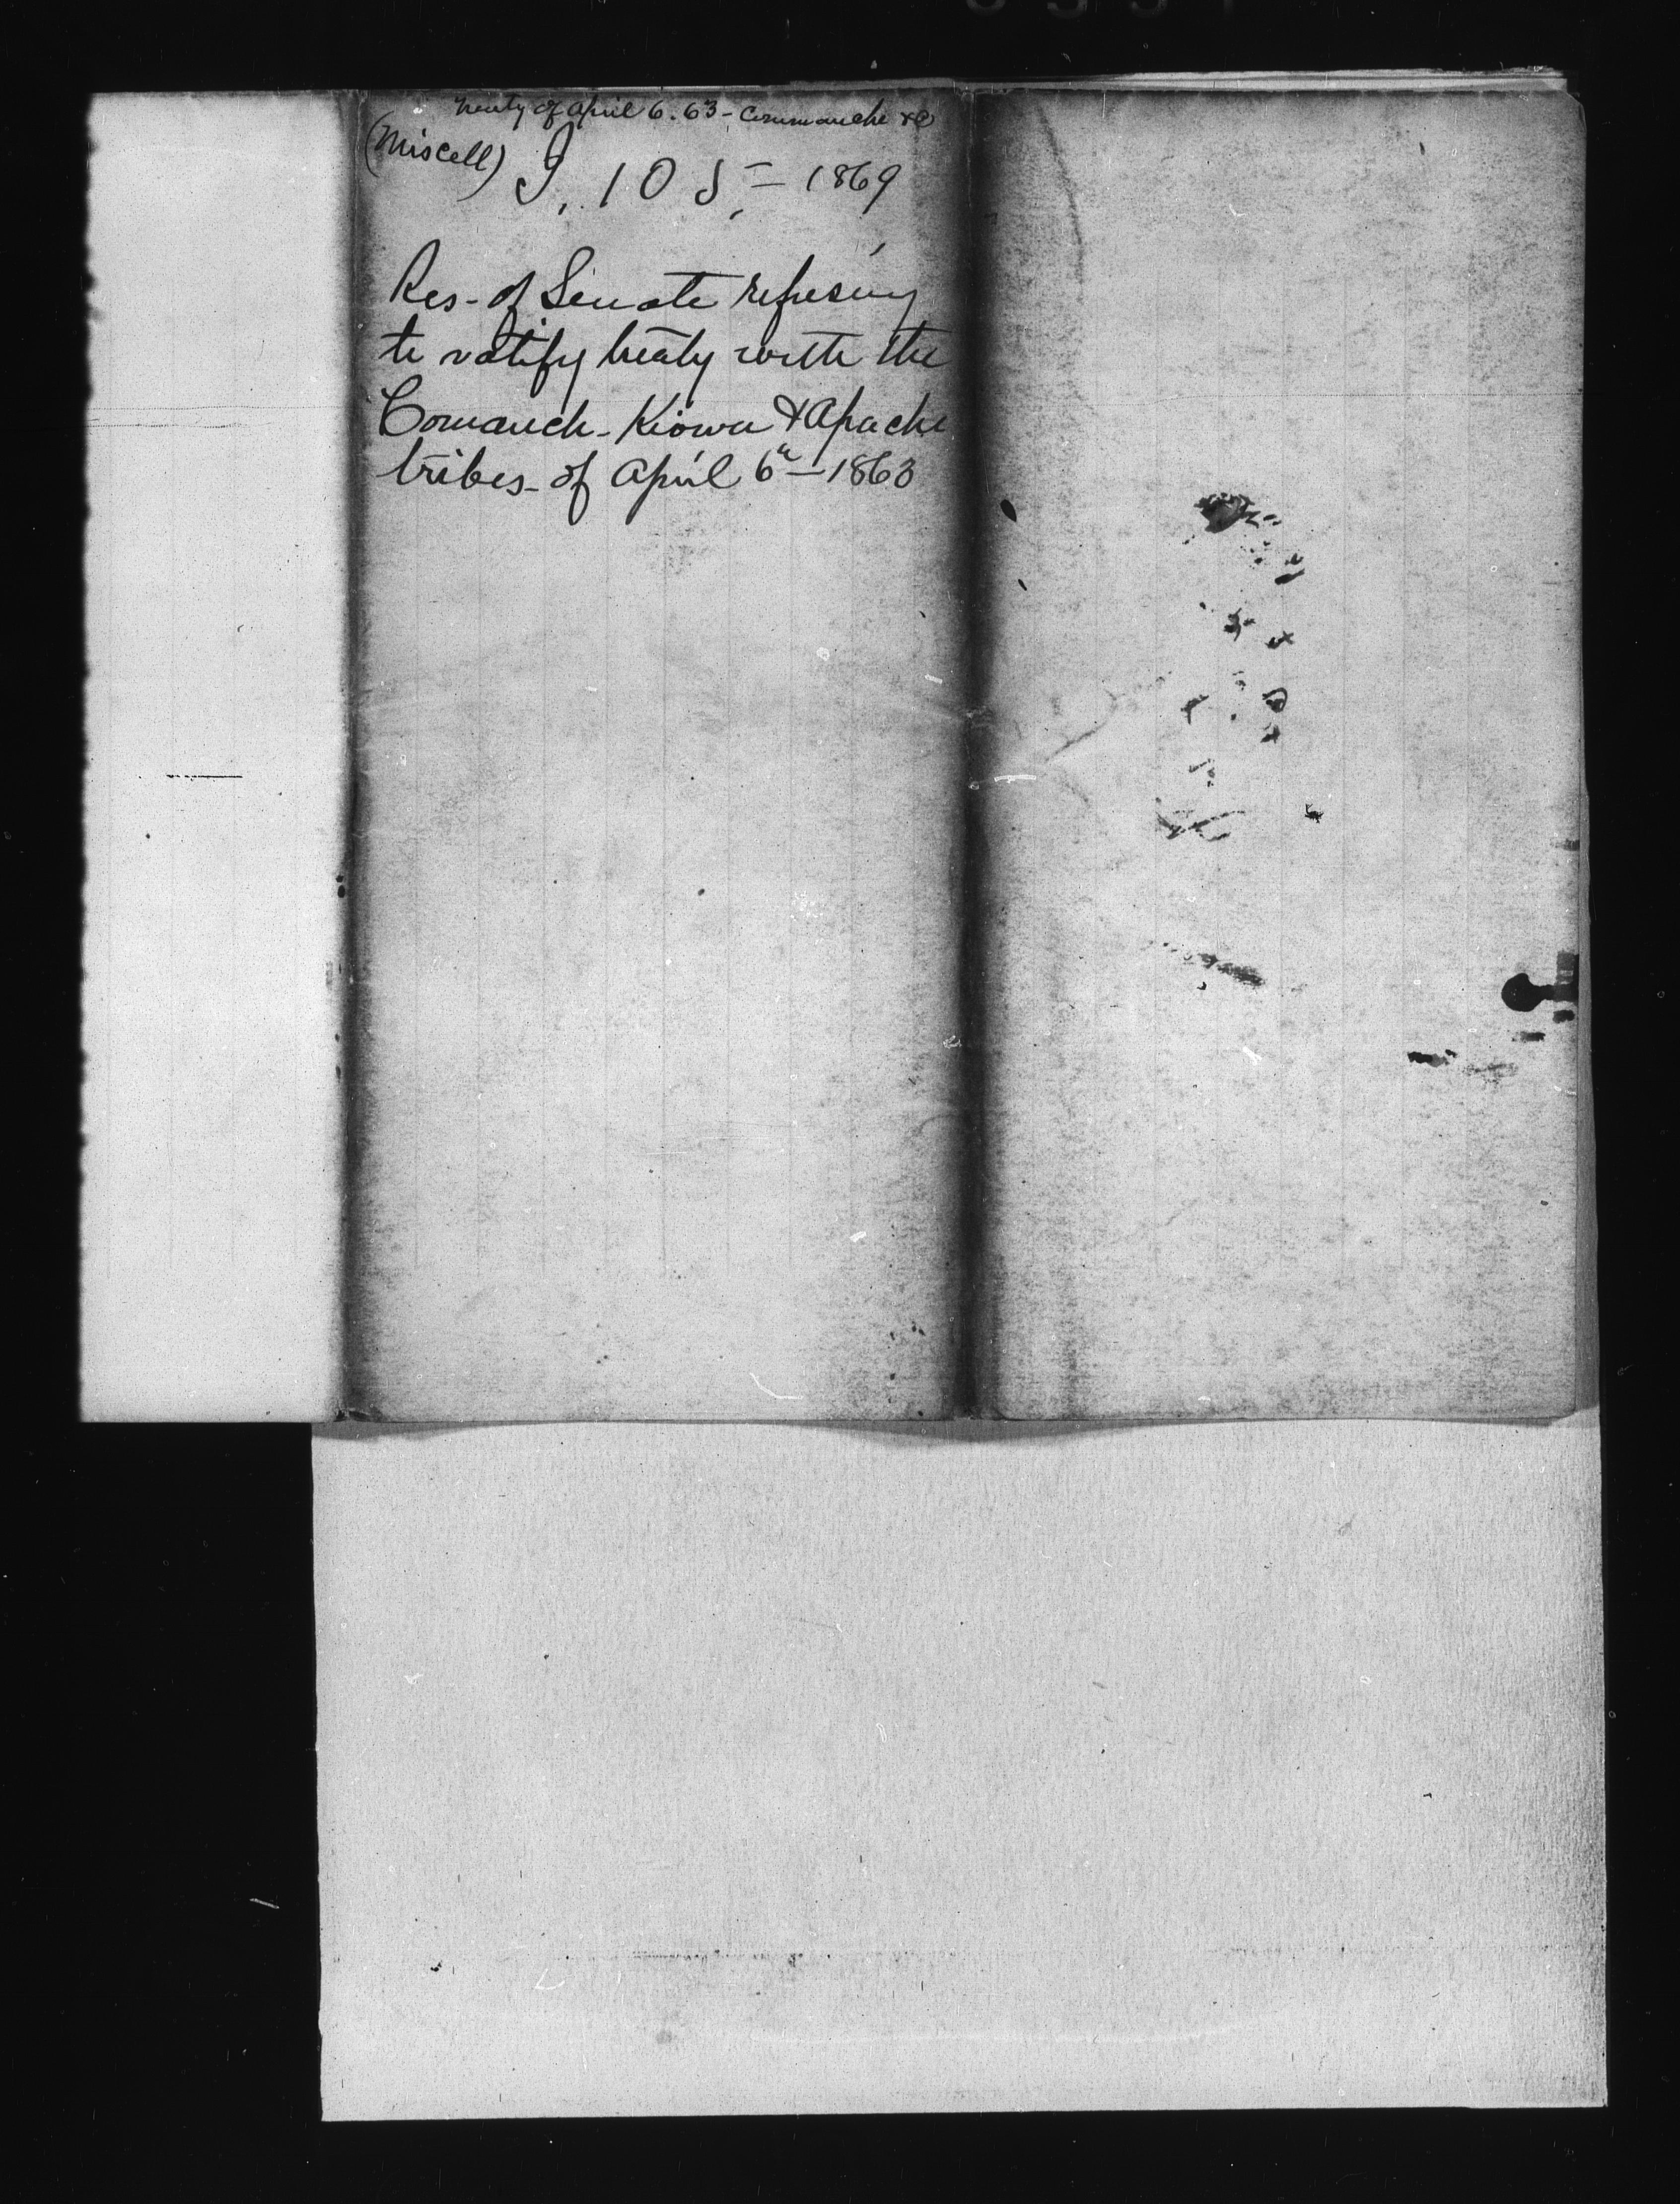 Treaty of April 6. 63 - Commanche &c
(Miscell)
I, 105, - 1869
Res- of Senate refusing
to ratify treaty with the
Comanch- Kiowa & Apache
tribes- of April 6th - 1863